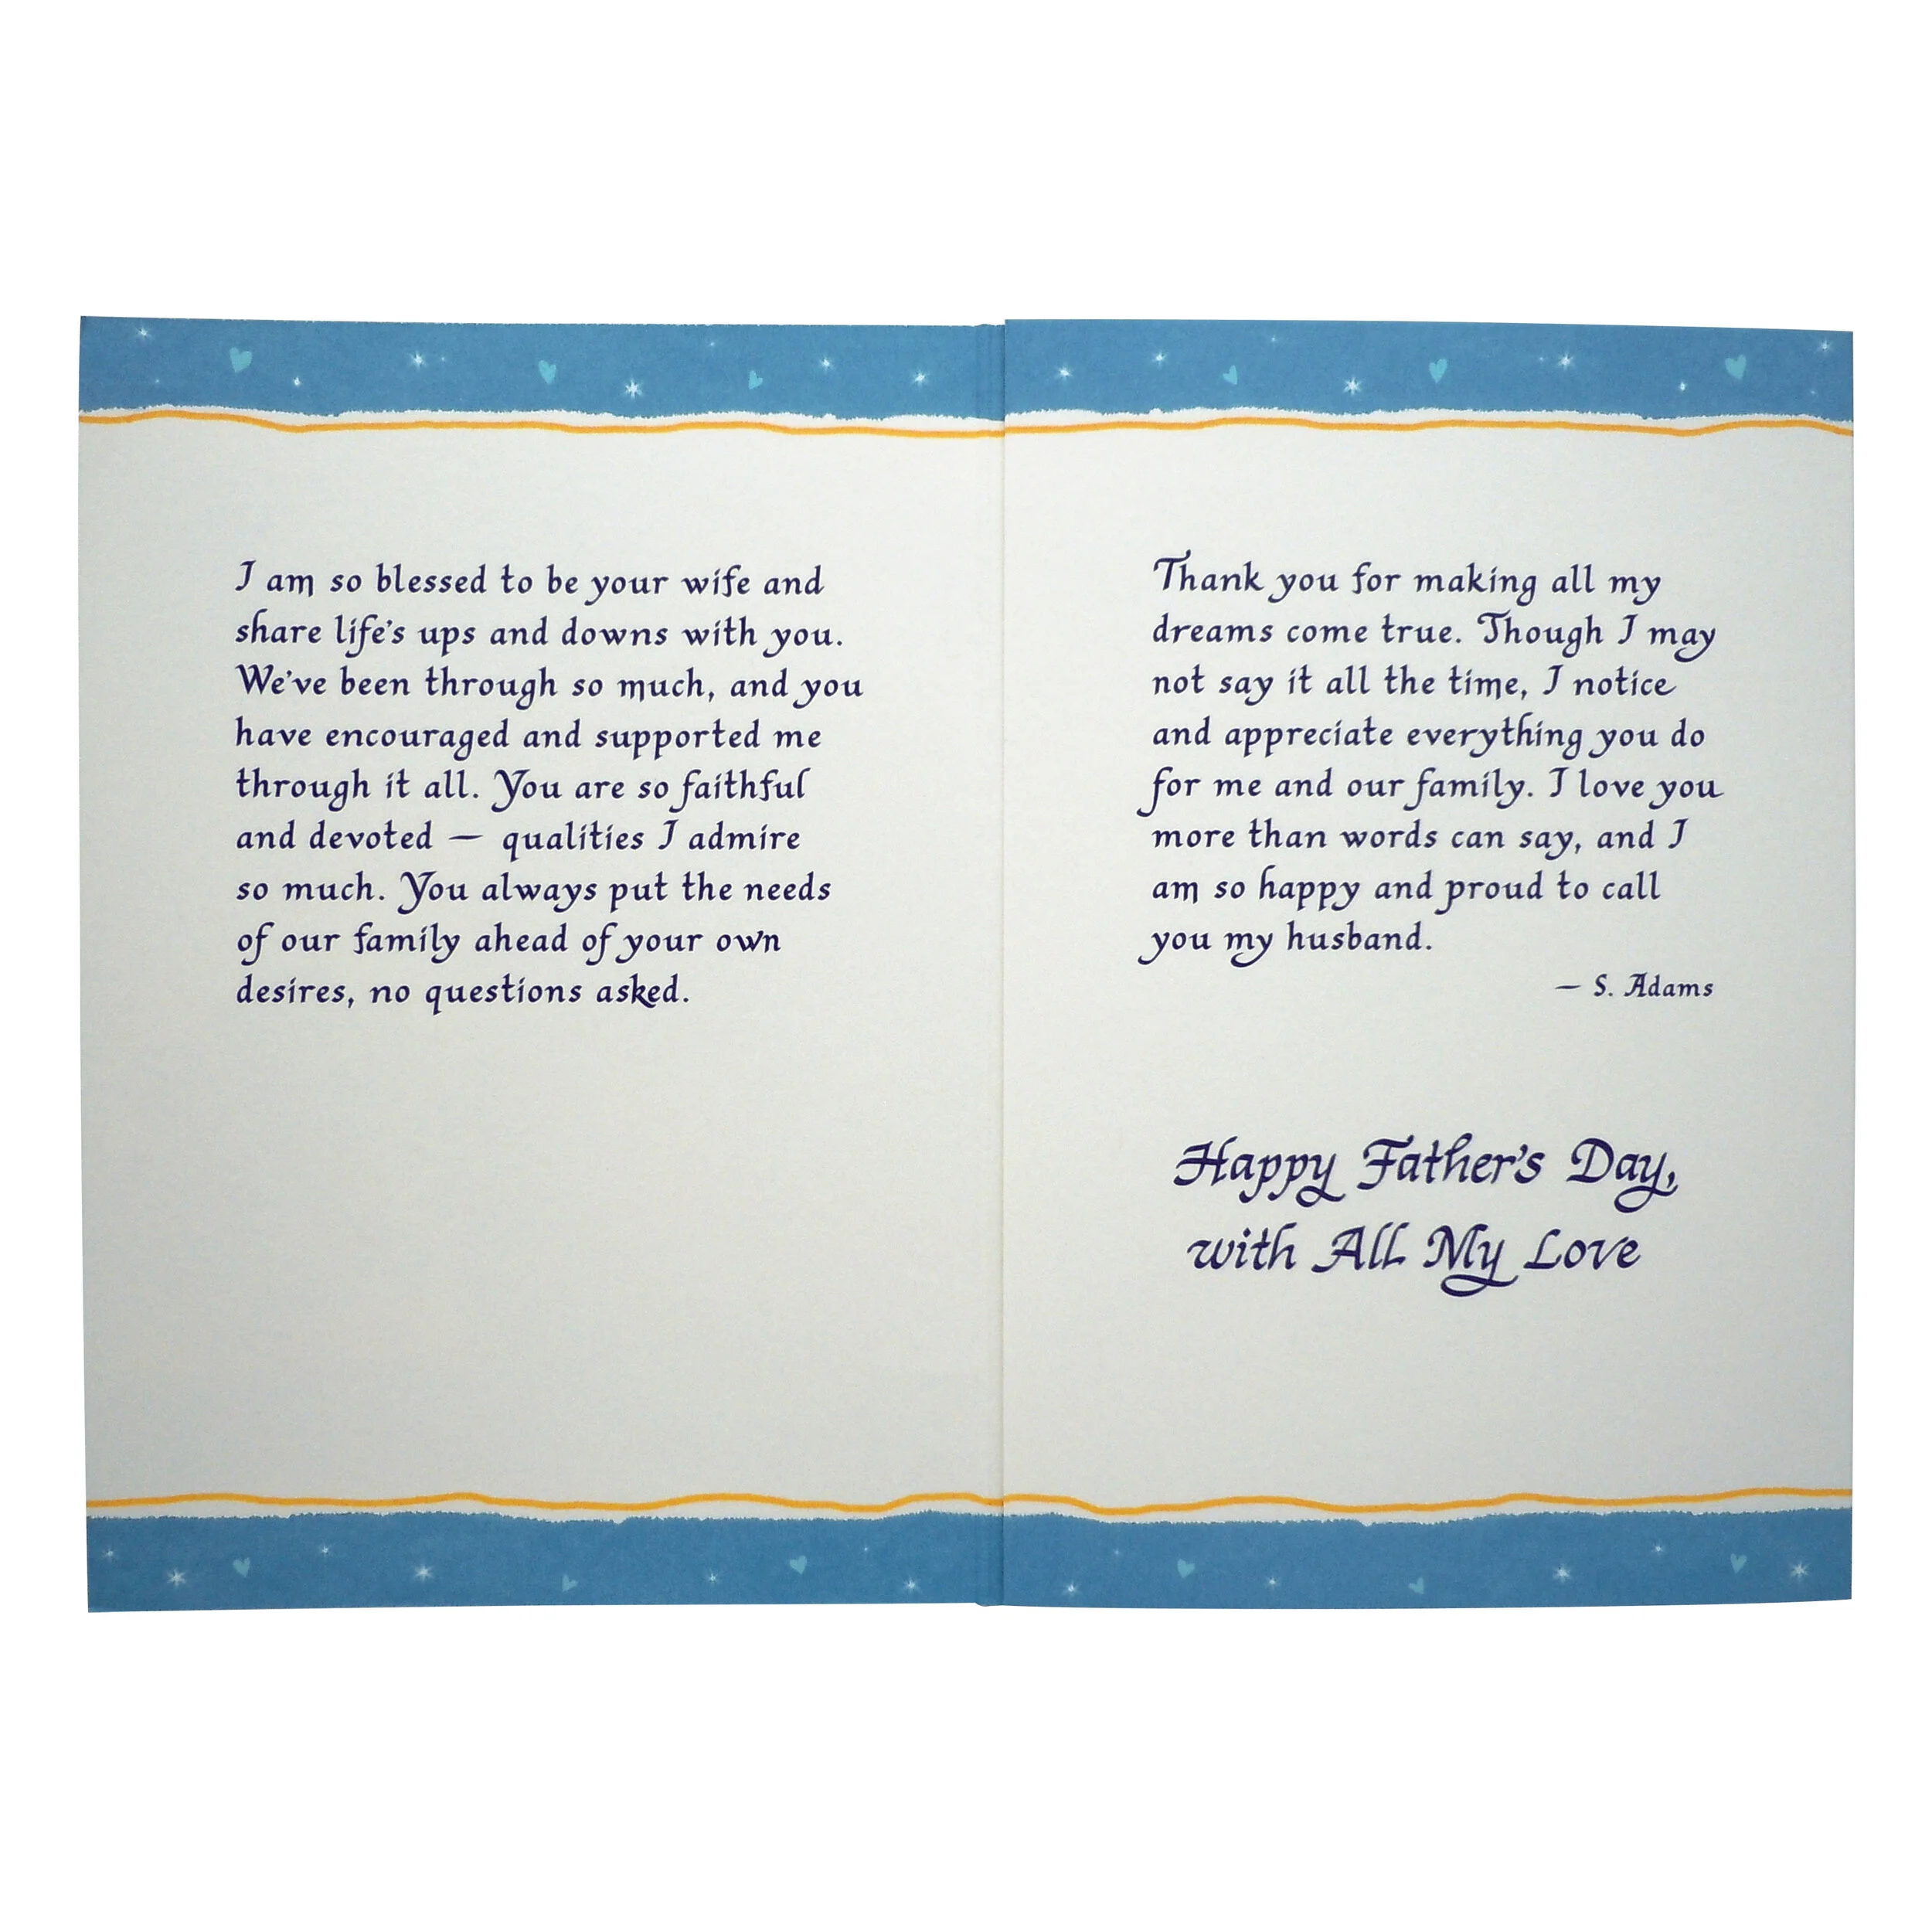 I am so blessed to be your wife and
share life's ups and downs with you.
We've been through so much, and you
have encouraged and supported me
through it all. You are so faithful
and devoted — qualities I admire
so much. You always put the needs
of our family ahead of your own
desires, no questions asked.
Thank you for making all my
dreams come true. Though I may
not say it all the time, I notice
and appreciate everything you do
for me and our family. I love you
more than words can say, and I
am so happy and proud to call
you my husband.
— S. Adams
Happy Father's Day,
with All My Love